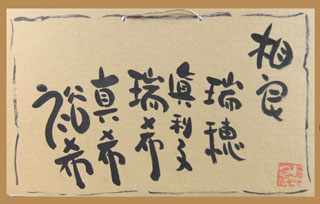 相良
瑞穂
眞利子
瑞希
真希
裕希